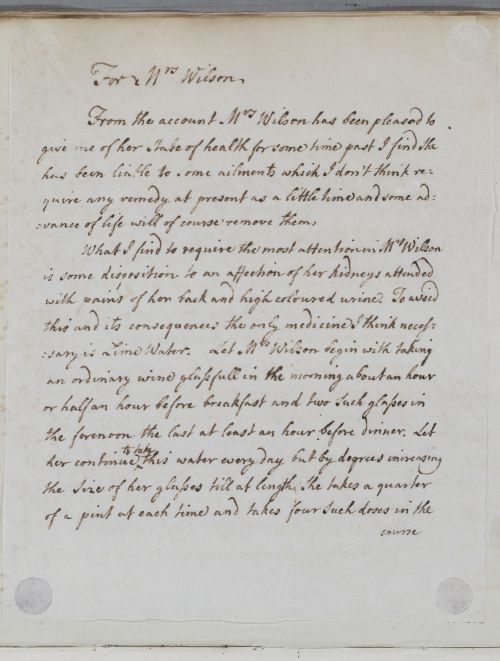 For Mrs Wilson.
From the account Mrs Wilson has been pleased to
give me of her State of health for some time past I find She
has been liable to some ailments which I don't think re:
quire any remedy at present as a little time and some ad:
:vance of life will of course remove them.
What I find to require the most attention in Mrs Wilson
is some disposition to an affection of her Kidneys attended
with pains of her back and high coloured urine. To avoid
this and its consequences the only medicine I think neces:
:sary is Lime Water. Let Mrs Wilson begin with taking
an ordinary wine glassfull in the morning about an hour
or half an hour before breakfast and two such glasses in
the forenoon the last at least an hour before dinner. Let
her continue to take this water every day but by degrees increasing
the Size of her glasses till at length She takes a quarter
of a pint at each time and takes four Such doses in the
course